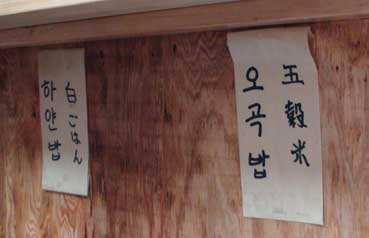 白ごはん
하얀밥
五穀米
오곡밥